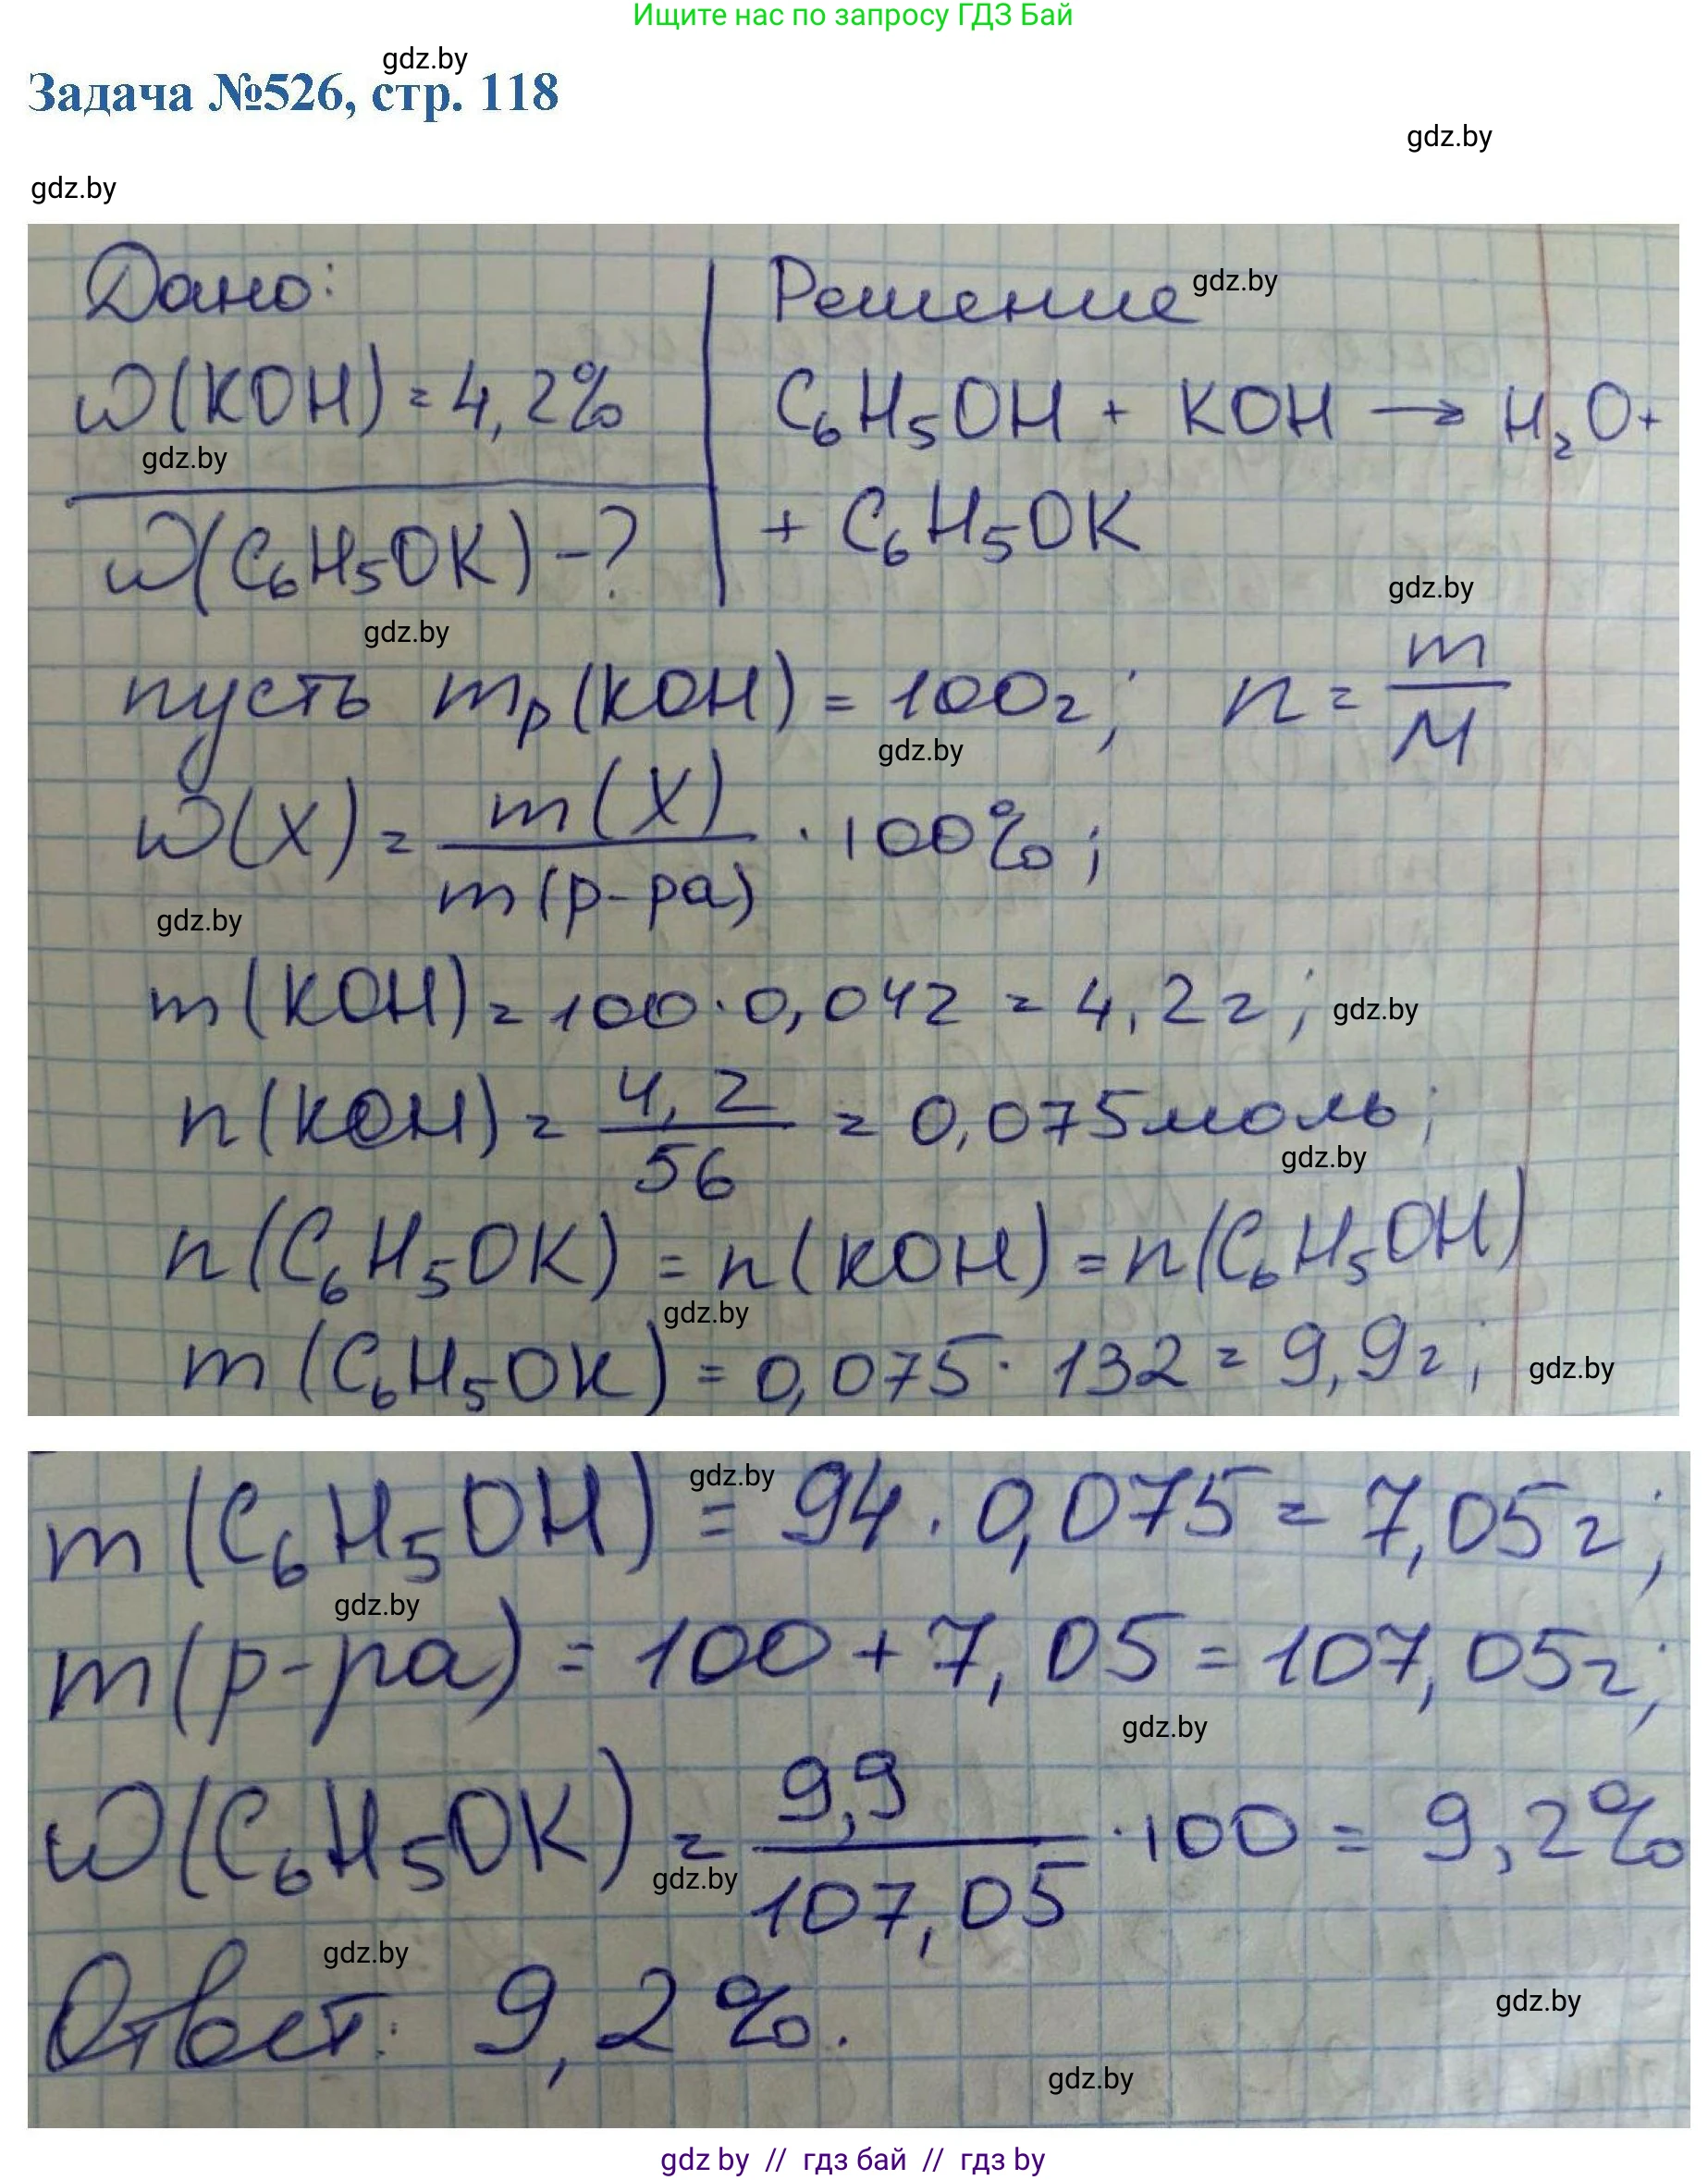 Ищите нас по запросу ГДЗ Бай
gdz.by
Задача №526, стр. 118
gdz.by
gdz.by
Дано:
Решение
gdz.by
ω(KOH) = 4,2%
C₆H₅OH + KOH → H₂O +
gdz.by
+ C₆H₅OK
ω(C₆H₅OK) - ?
gdz.by
gdz.by
пусть mр(KOH) = 100г; n = m/M
gdz.by
ω(X) = m(X)/m(р-ра) · 100%;
gdz.by
m(KOH) = 100 · 0,042 = 4,2г;
gdz.by
n(KOH) = 4,2/56 = 0,075моль;
gdz.by
n(C₆H₅OK) = n(KOH) = n(C₆H₅OH)
gdz.by
m(C₆H₅OK) = 0,075 · 132 = 9,9г;
gdz.by
gdz.by
m(C₆H₅OH) = 94 · 0,075 = 7,05г;
gdz.by
m(р-ра) = 100 + 7,05 = 107,05г;
gdz.by
ω(C₆H₅OK) = 9,9/107,05 · 100 = 9,2%
gdz.by
gdz.by
Ответ: 9,2%.
gdz.by
gdz.by
gdz by // гдз бай // гдз by